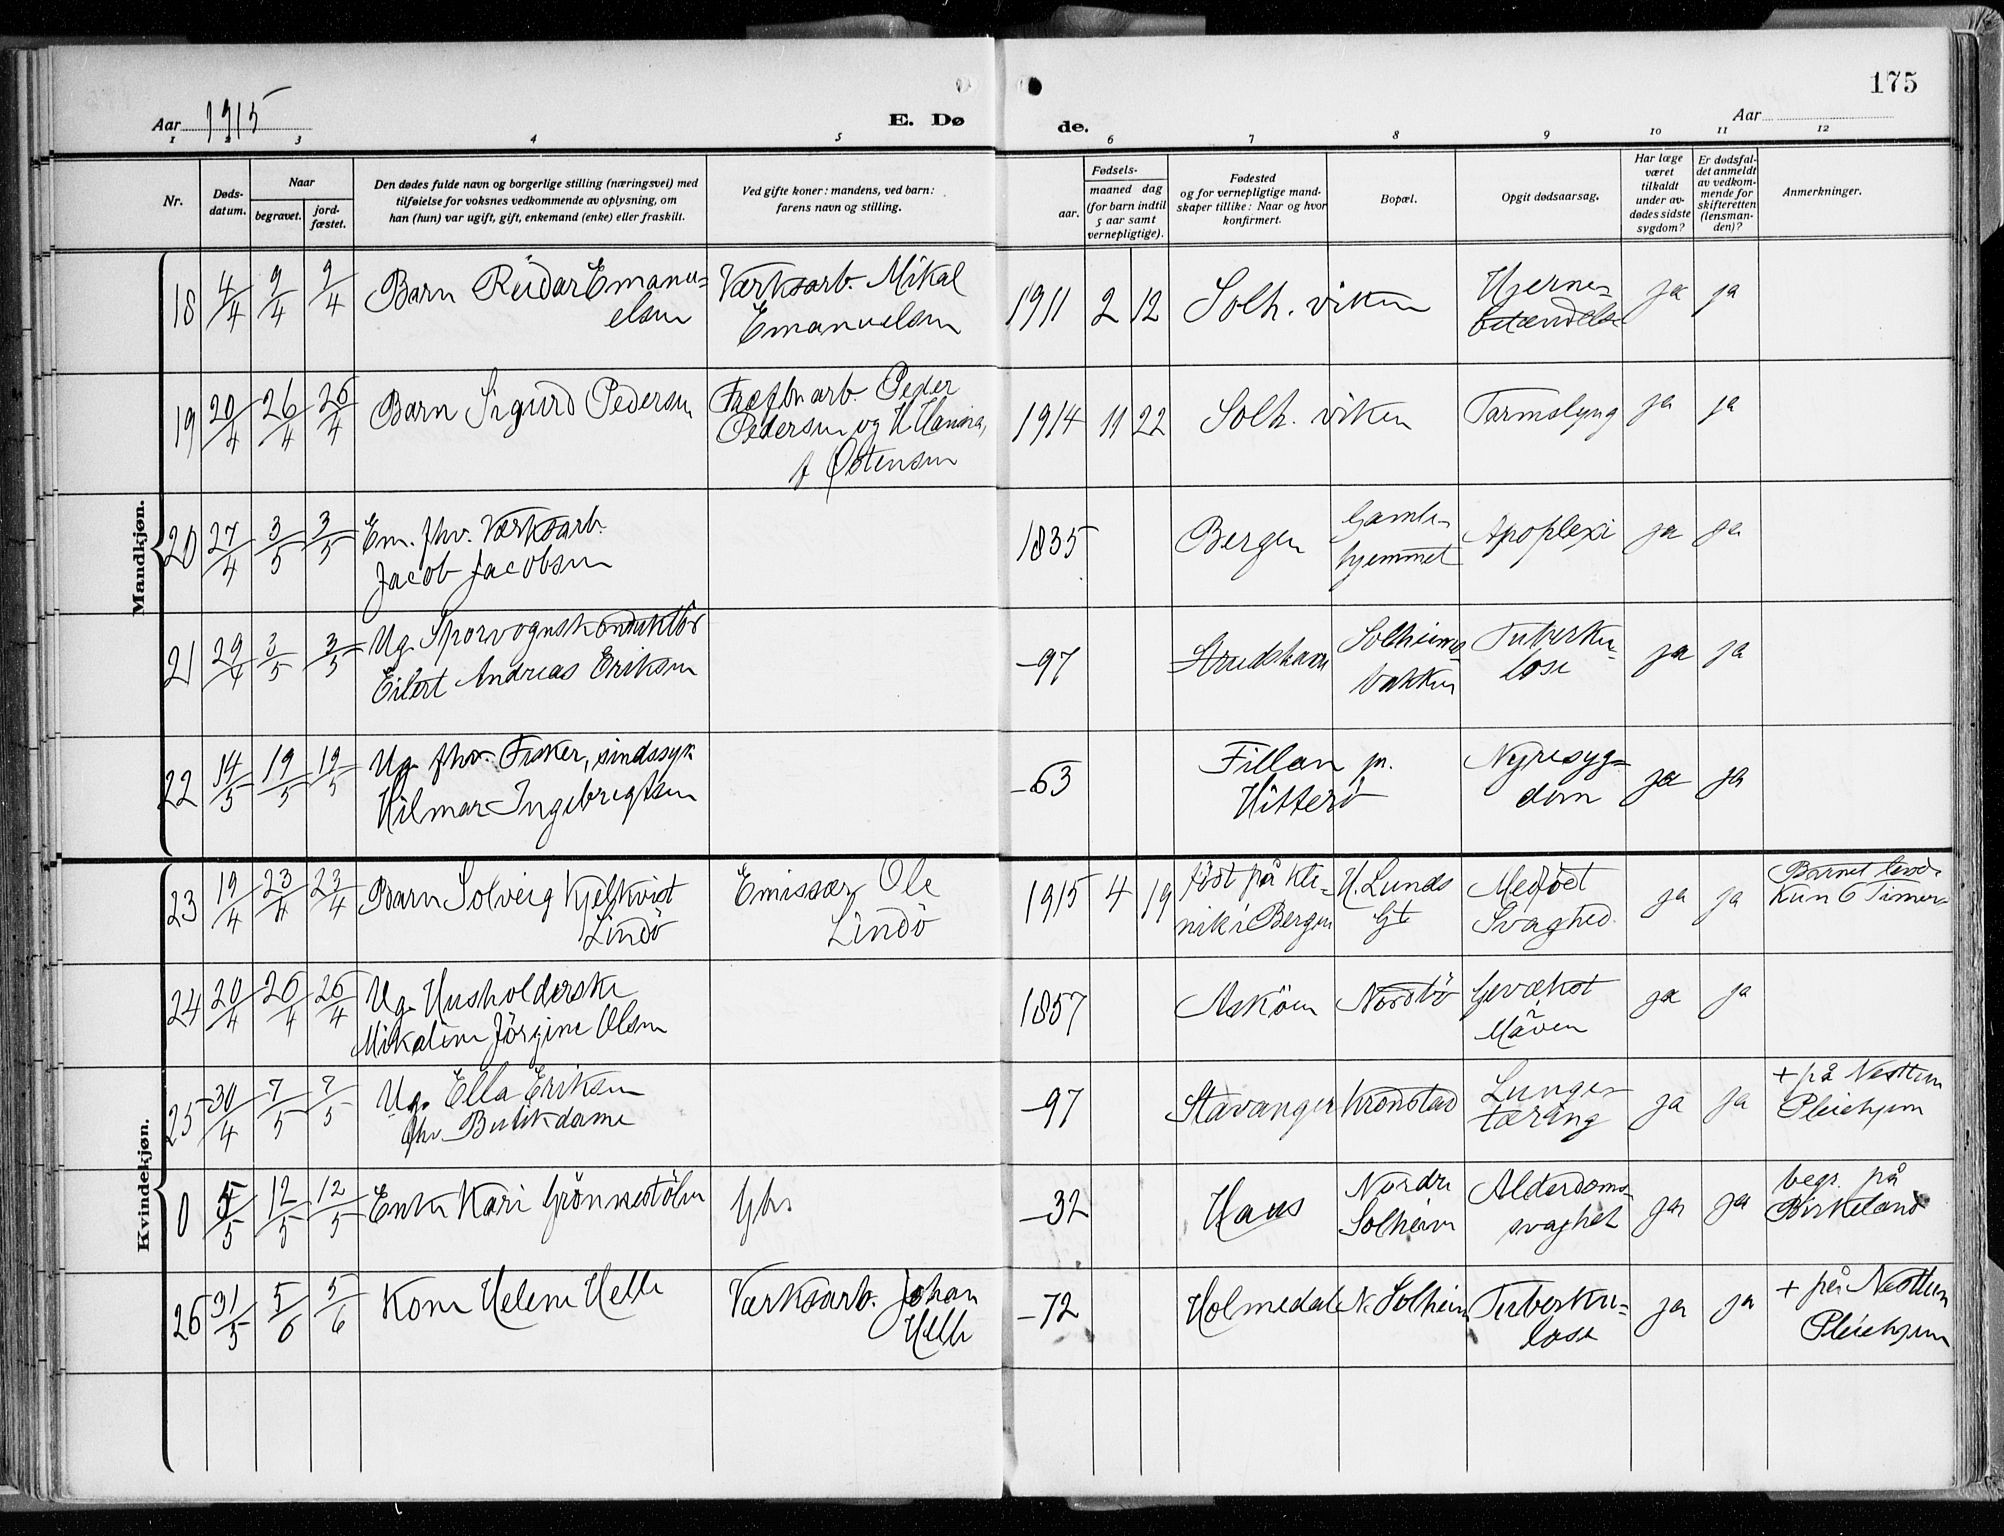 175
Aar 1915
E. Dø
de.
Aar
1 2 3 4 5 6 7 8 9 10 11 12
Nr.
Døds-
datum.
Naar
begravet.
jord-
fæstet.
Den dødes fulde navn og borgerlige stilling (næringsvei) med
tilføielse for voksnes vedkommende av oplysning, om
han (hun) var ugift, gift, enkemand (enke) eller fraskilt.
Ved gifte koner: mandens, ved barn:
farens navn og stilling.
Fødsels-
aar.
maaned dag
(for barn indtil
5 aar samt
vernepligtige).
Fødested
og for vernepligtige mand-
skaper tillike: Naar og hvor
konfirmert.
Bopæl.
Opgit dødsaarsag.
Har læge
været
tilkaldt
under av-
dødes sidste
sygdom?
Er dødsfal-
det anmeldt
av vedkom-
mende for
skifteretten
(lensman-
den)?
Anmerkninger.
Mandkjøn.
18 4/4 9/4 9/4 Barn Reidar Emanu-
elsen
Værksarb. Mikal
Emanuelsen
1911 2 12 Solh. viken
Hjerne-
betændelse
ja ja
19 20/4 26/4 26/4 Barn Sigurd Pedersen
Peder
Pedersen og H. Hansina,
f Østensen
1914 11 22 Solh. viken Tarmslyng ja ja
20 27/4 3/5 3/5 Em. fhv. Værksarb.
Jacob Jacobsen
1835 Bergen
Gamle-
hjemmet
Apoplexi ja ja
21 29/4 3/5 3/5 Ug. Sporvognskonduktör
Eilert Andreas Eriksen
-97
Solheims
bakken
Tuberku-
lose
ja ja
22 14/5 19/5 19/5 Ug. fhv. Fisker, sindssyk
Hilmar Ingebrigtsen
-63 Fillan pr.
Hitterö
Nyresyg-
dom
ja ja
Kvindekjøn.
23 19/4 23/4 23/4 Barn Solveig Kjelkvist
Lindö
Emissær Ole
Lindö
1915 4 19 föst på kli-
nik i Bergen
H. Lunds
Gt
Medfödt
Svaghed.
ja ja
Barnet levde
Kun 6 Timer.
24 20/4 26/4 26/4 Ug. Husholderske
Mikaline Jörgine Olsen
1857 Asköen Nordbö
Gevækst
i
Maven
ja ja
25 30/4 7/5 7/5 Ug. Ella Eriksen
fhv. Butikdame
-97 Stavanger Kronstad
Lunge-
tæring
ja ja
+ på Nesttun
Pleiehjem
0 5/5 12/5 12/5 Enke Kari Grönnestölen Gbr.
-32 Haus
Nordre
Solheim
Alderdoms-
svaghet
ja ja
begr. på
Birkeland
26 31/5 5/6 5/6 Kone Helene Helle
Værksarb. Johan
Helle
-72 Holmedal N. Solheim
Tuberku-
lose
ja ja
+ på Nesttun
Pleiehjem